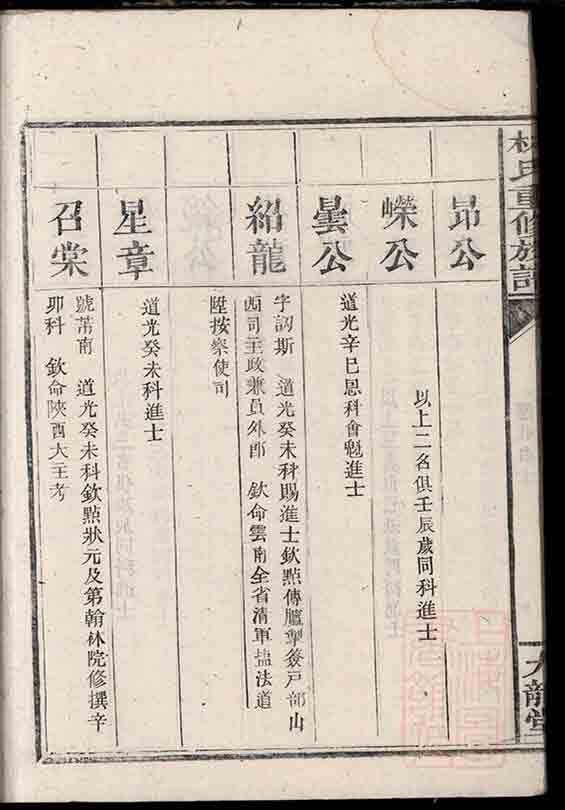 林氏重修族譜
九龍堂
昂公
嶸公
以上二名俱壬辰歲同科進士
曇公
道光辛巳恩科會魁進士
紹龍
字訒斯 道光癸未科賜進士欽點傳臚掣簽戶部山
西司主政兼員外郎 欽命雲南全省清軍鹽法道
陞按察使司
星章
道光癸未科進士
召棠
號芾南 道光癸未科欽點狀元及第翰林院修撰辛
卯科 欽命陝西大主考